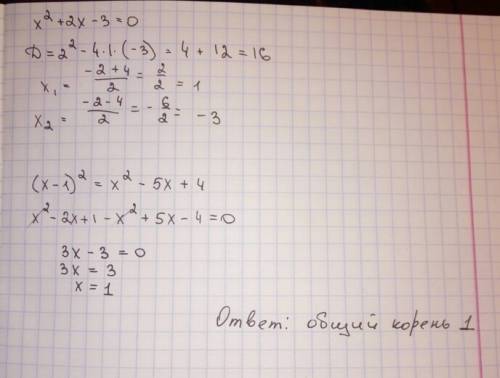 x² + 2x - 3 = 0
D = 2² - 4·1·(-3) = 4 + 12 = 16
x₁ = (-2+4)/2 = 2/2 = 1
x₂ = (-2-4)/2 = -6/2 = -3
(x-1)² = x² - 5x + 4
x² - 2x + 1 - x² + 5x - 4 = 0
3x - 3 = 0
3x = 3
x = 1
Ответ: общий корень 1